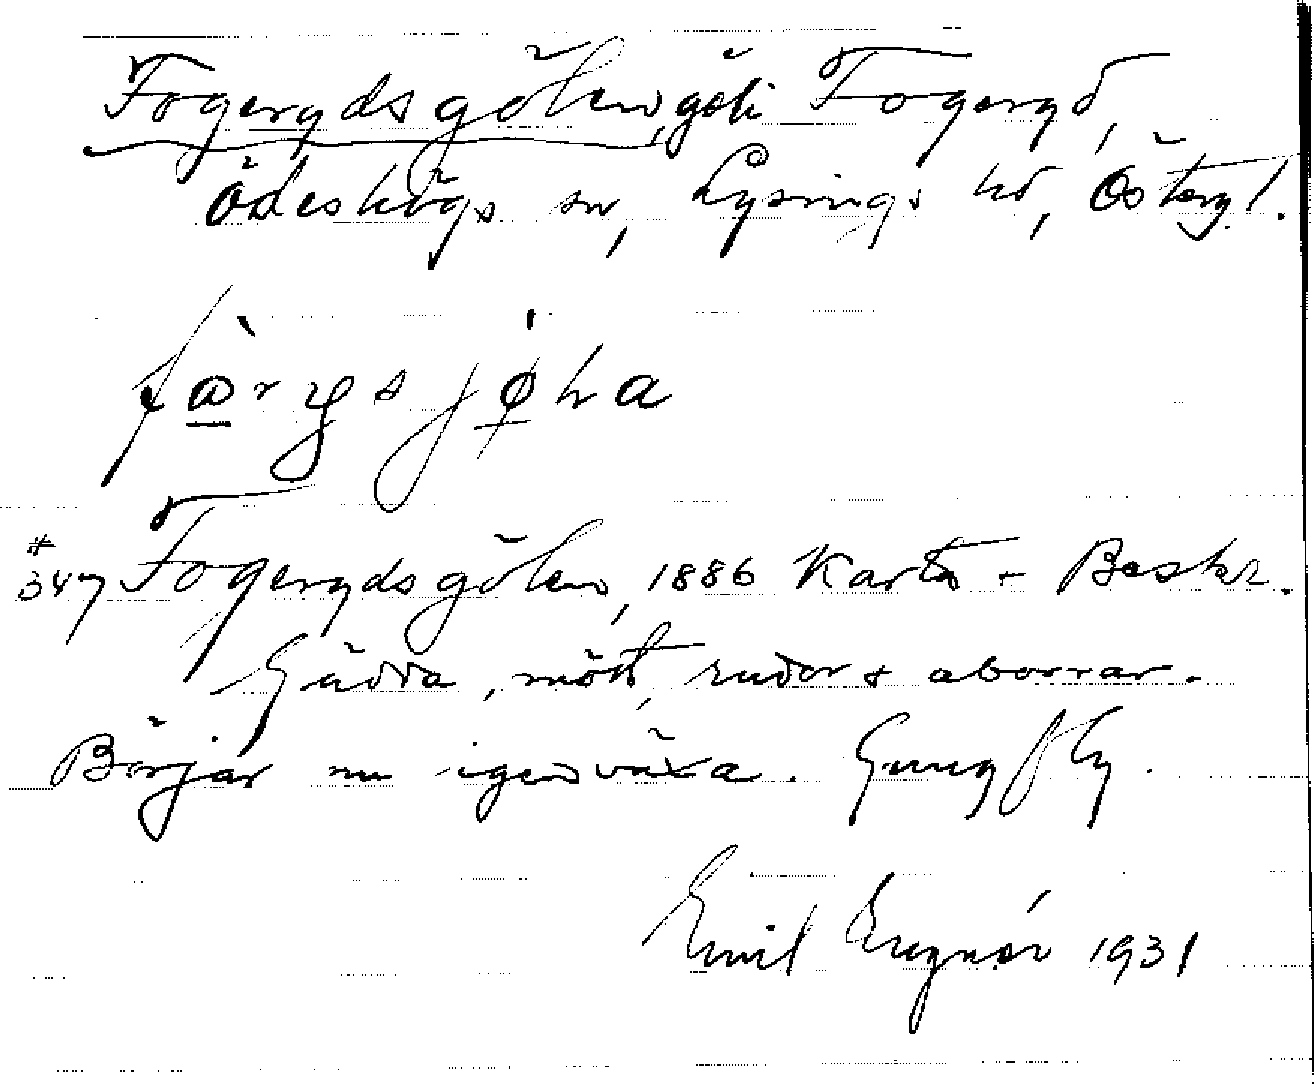 Fogerydsgölen, göl i Fogeryd,
Ödeshögs sn, Lysings hd, Östergl.
fàrysjǿla
#
347 Fogerydsgölen, 1886 Karta + Beskr.
Gädda, mört, rudor & aborrar.
Börjar nu igenväxa. Gungfly.
Emil Engnér 1931